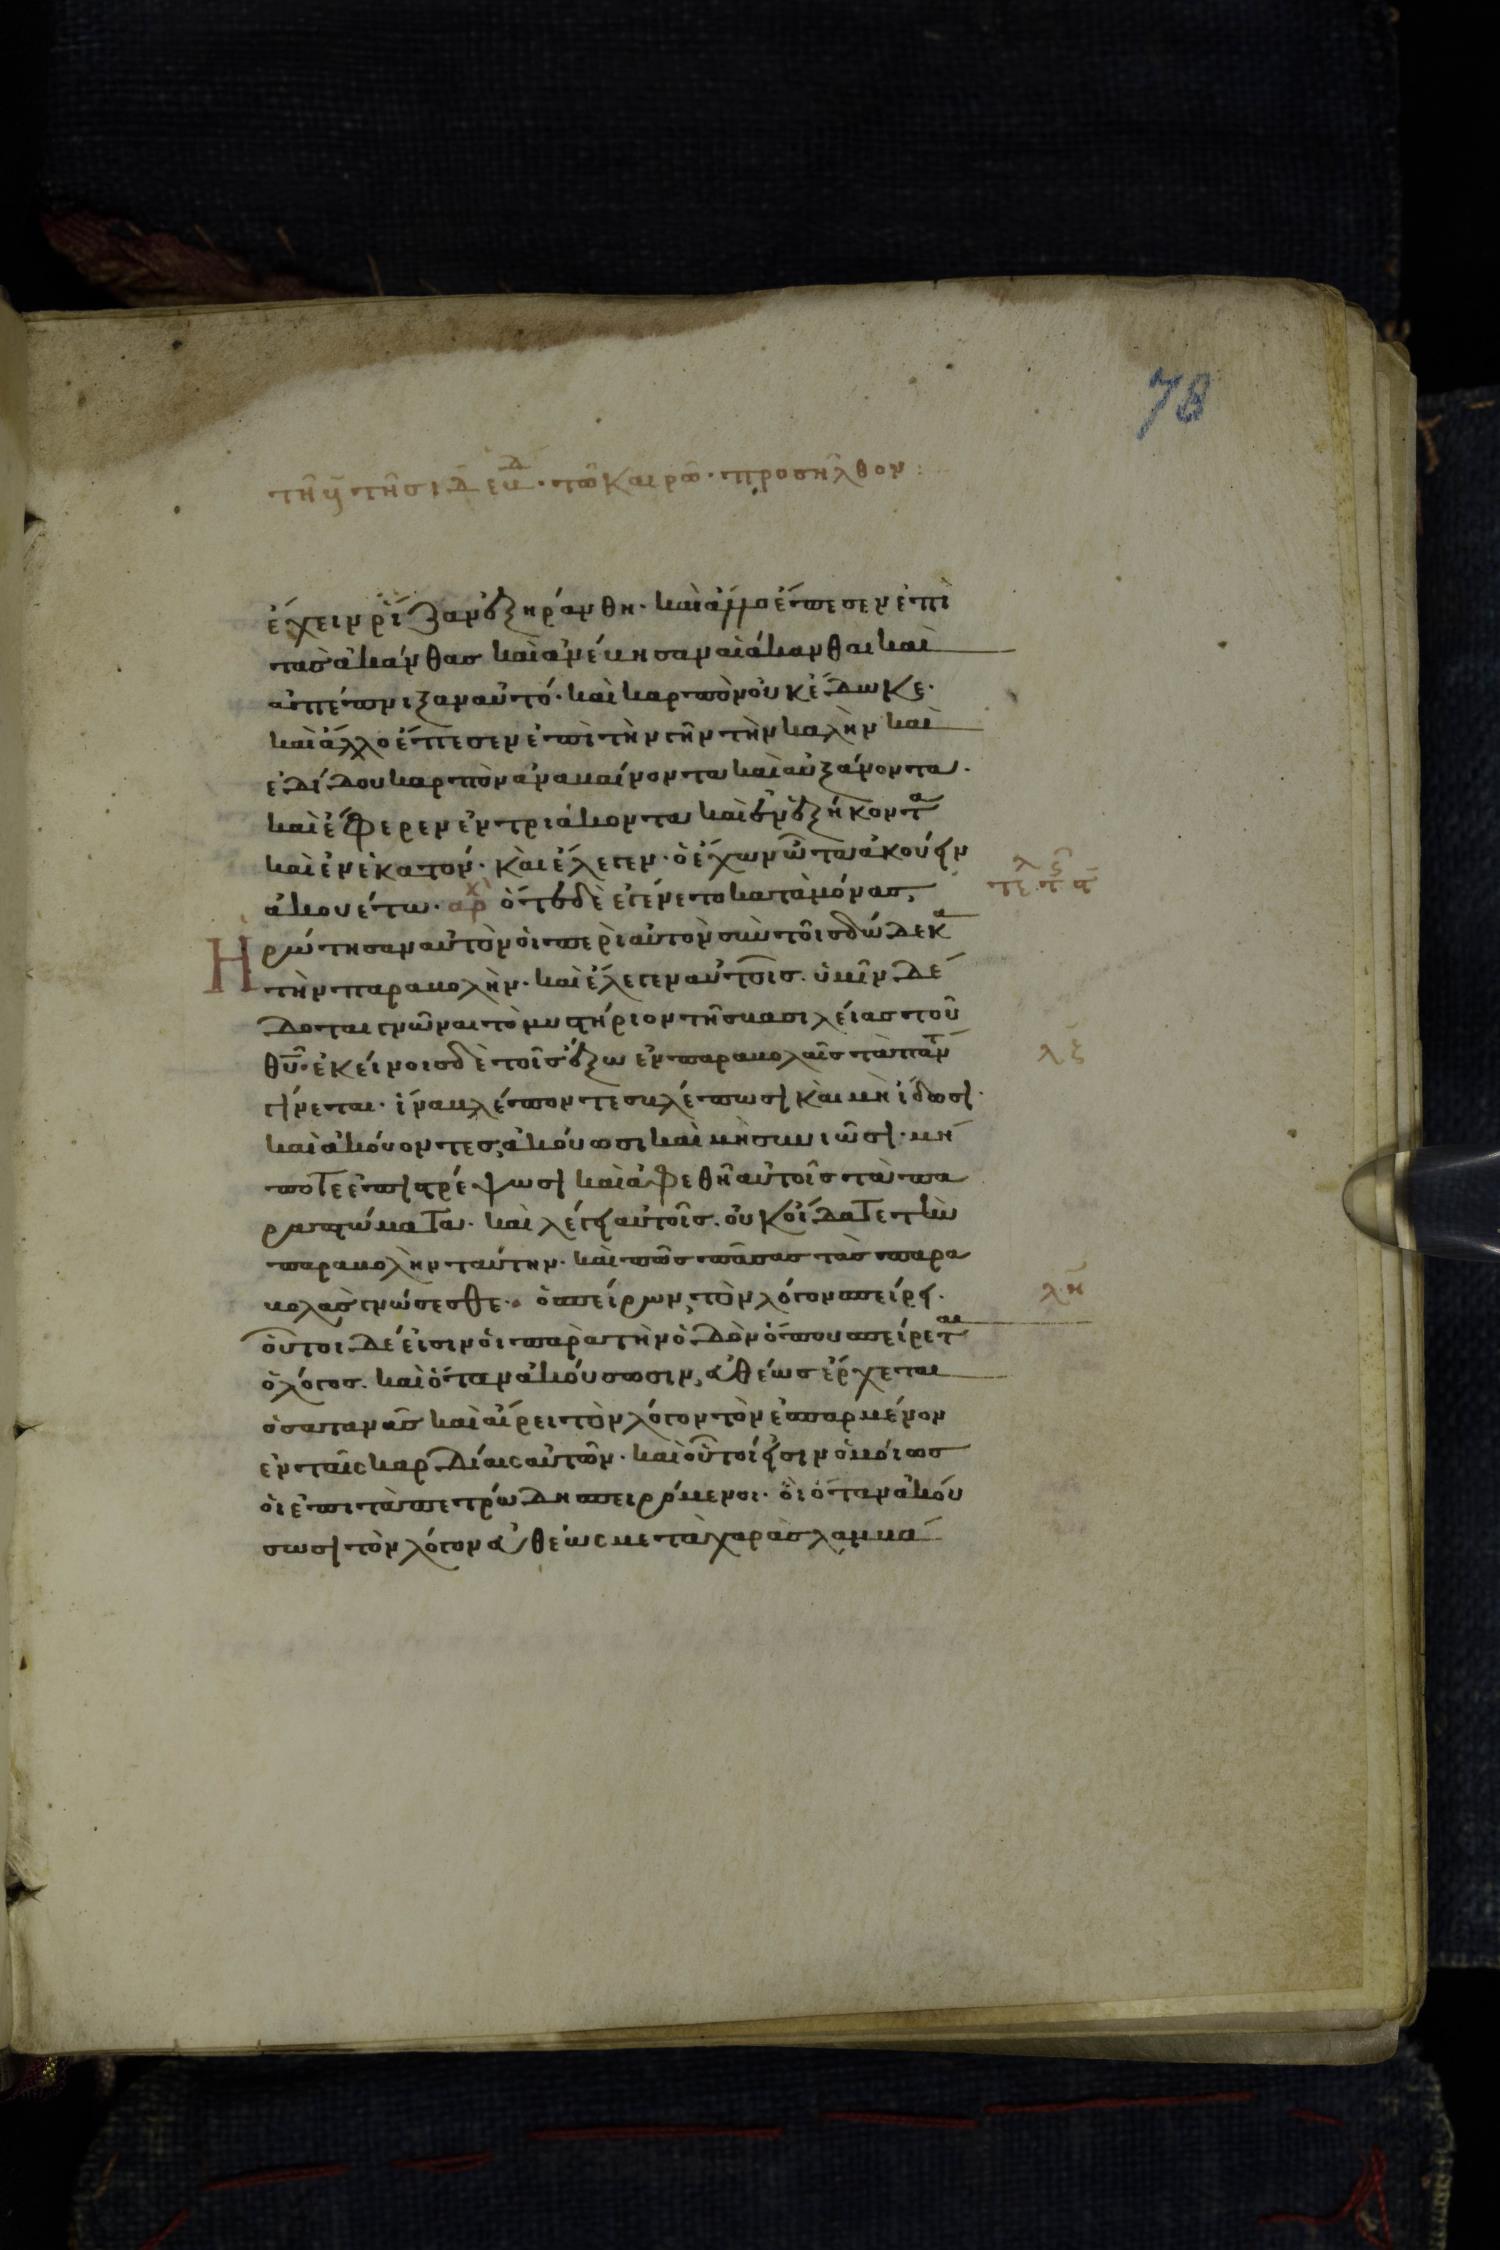 78
τῆ ϛ̄ τῆς ι̅δ̅ ἑβδ · τῶ καιρῶ · προσῆλθον :
ἔχειν ρίζαν ἐξηράνθη · καὶ ἄλλο ἔπεσεν ἐπὶ
τὰς ἀκάνθας καὶ ἀνέβησαν αἱ ἄκανθαι καὶ
ἀπέπνιξαν αὐτό · καὶ καρπὸν οὐκ ἔδωκε ·
καὶ ἄλλο ἔπεσεν ἐπὶ τὴν γῆν τὴν καλὴν καὶ
ἐδίδου καρπὸν ἀναβαίνοντα καὶ αὐξάνοντα ·
καὶ ἔφερεν ἐν τριάκοντα καὶ ἐν ἐξήκοντα
καὶ ἐν ἑκατόν · καὶ ἔλεγεν · ὁ ἔχων ὦτα ἀκούειν
ἀκουέτω · αρχ ὅτε δὲ ἐγένετο καταμόνας,
λϛ
Ηρώτησαν αὐτὸν οἱ περὶ αὐτὸν σὺν τοῖς δώδεκα
τὴν παραβολὴν · καὶ ἔλεγεν αὐτοῖς · ὑμῖν δέ
δοται γνῶναι τὸ μυστήριον τῆς βασιλείας τοῦ
θυ · ἐκείνοις δὲ τοῖς ἔξω ἐν παραβολαῖς τὰ πάντ
λζ
γίνεται · ἵνα βλέποντες βλέπωσι καὶ μὴ ἴδωσι ·
καὶ ἀκούοντες, ἀκούωσι καὶ μὴ συνιῶσι · μή
ποτε ἐπιστρέψωσι καὶ ἀφεθῆ αὐτοῖς τὰ πα
ραπτώματα · καὶ λέγει αὐτοῖς · οὐκ οἴδατε τὴν
παραβολὴν ταύτην · καὶ πῶς πάσας τὰς παρα
βολὰς γνώσεσθε · ὁ σπείρων, τὸν λόγον σπείρει ·
λη
οὗτοι δέ εἰσιν οἱ παρὰ τὴν ὁδὸν ὅπου σπείρεται
ὁ λόγος · καὶ ὅταν ἀκούσωσιν, εὐθέως ἔρχεται
ὁ σατανᾶς καὶ αἴρει τὸν λόγον τὸν ἐσπαρμένον
ἐν ταῖς καρδίαις αὐτῶν · καὶ οὗτοί εἰσιν ὁμοίως
οἱ ἐπι τὰ πετρώδη σπειρόμενοι · οἳ ὅταν ἀκού
σωσι τὸν λόγον εὐθέως μετὰ χαρὰς λαμβά